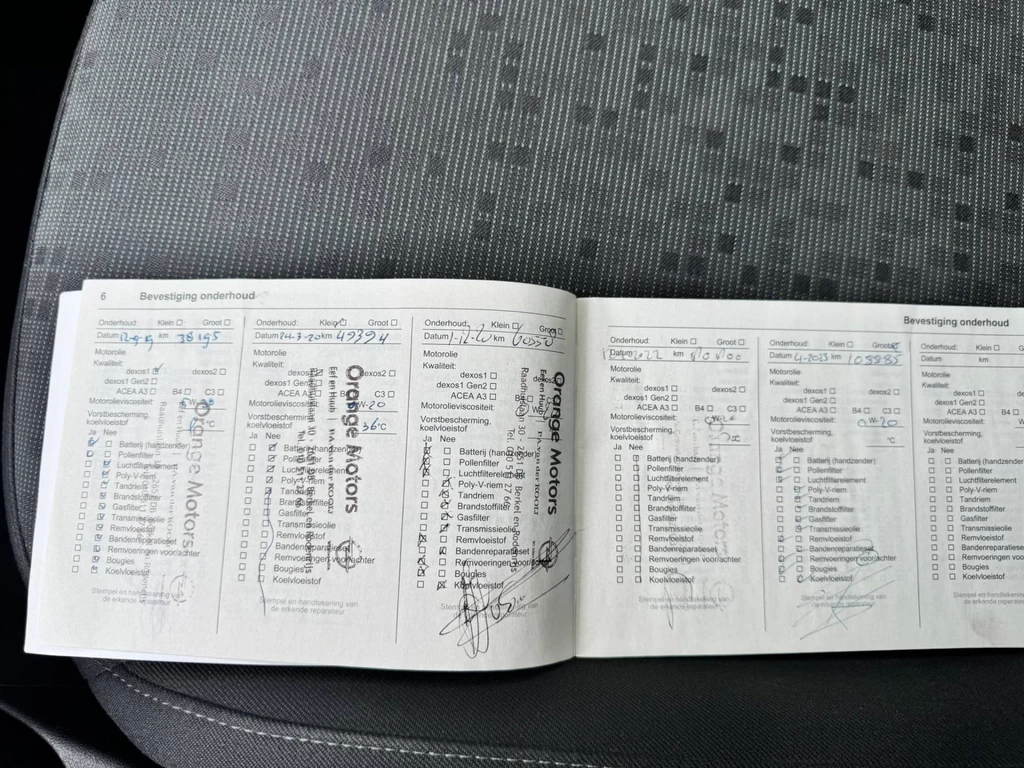 6 Bevestiging onderhoud
Onderhoud: Klein Groot
Datum km 38195
Motorolie
Kwaliteit:
dexos1 dexos2
dexos1 Gen2
ACEA A3 B4 C3
Motorolieviscositeit:
Vorstbescherming,
koelvloeistof °C
Ja Nee
Batterij (handzender)
Pollenfilter
Luchtfilterelement
Poly-V-riem
Tandriem
Brandstoffilter
Gasfilter
Transmissieolie
Remvloeistof
Bandenreparatieset
Remvoeringen voor/achter
Bougies
Koelvloeistof
Stempel en handtekening van
de erkende reparateur
Orange Motors
Onderhoud: Klein Groot
Datum 24-3-20 km 49394
Motorolie
Kwaliteit:
dexos1 dexos2
dexos1 Gen2
ACEA A3 B4 C3
Motorolieviscositeit: W-20
Vorstbescherming,
koelvloeistof 36°C
Ja Nee
Batterij (handzender)
Pollenfilter
Luchtfilterelement
Poly-V-riem
Tandriem
Brandstoffilter
Gasfilter
Transmissieolie
Remvloeistof
Bandenreparatieset
Remvoeringen voor/achter
Bougies
Koelvloeistof
Orange Motors
Onderhoud: Klein Groot
Datum km
Motorolie
Kwaliteit:
dexos1
dexos1 Gen2
ACEA A3 B4
Motorolieviscositeit:
Vorstbescherming,
koelvloeistof
Ja Nee
Batterij (handzender)
Pollenfilter
Luchtfilterelement
Poly-V-riem
Tandriem
Brandstoffilter
Gasfilter
Transmissieolie
Remvloeistof
Bandenreparatieset
Remvoeringen voor/achter
Bougies
Koelvloeistof
Orange Motors
Bevestiging onderhoud
Onderhoud: Klein Groot
Datum 2022 km
Motorolie
Kwaliteit:
dexos1 dexos2
dexos1 Gen2
ACEA A3 B4 C3
Motorolieviscositeit:
Vorstbescherming,
koelvloeistof °C
Ja Nee
Batterij (handzender)
Pollenfilter
Luchtfilterelement
Poly-V-riem
Tandriem
Brandstoffilter
Gasfilter
Transmissieolie
Remvloeistof
Bandenreparatieset
Remvoeringen voor/achter
Bougies
Koelvloeistof
Stempel en handtekening van
de erkende reparateur
Onderhoud: Klein Groot
Datum 4-2023 km 103885
Motorolie
Kwaliteit:
dexos1 dexos2
dexos1 Gen2
ACEA A3 B4 C3
Motorolieviscositeit: 0W-20
Vorstbescherming,
koelvloeistof °C
Ja Nee
Batterij (handzender)
Pollenfilter
Luchtfilterelement
Poly-V-riem
Tandriem
Brandstoffilter
Gasfilter
Transmissieolie
Remvloeistof
Bandenreparatieset
Remvoeringen voor/achter
Bougies
Koelvloeistof
Stempel en handtekening van
de erkende reparateur
Onderhoud: Klein
Datum km
Motorolie
Kwaliteit:
dexos1
dexos1 Gen2
ACEA A3 B4
Motorolieviscositeit:
Vorstbescherming,
koelvloeistof
Ja Nee
Batterij (handzender)
Pollenfilter
Luchtfilterelement
Poly-V-riem
Tandriem
Brandstoffilter
Gasfilter
Transmissieolie
Remvloeistof
Bandenreparatieset
Bougies
Koelvloeistof